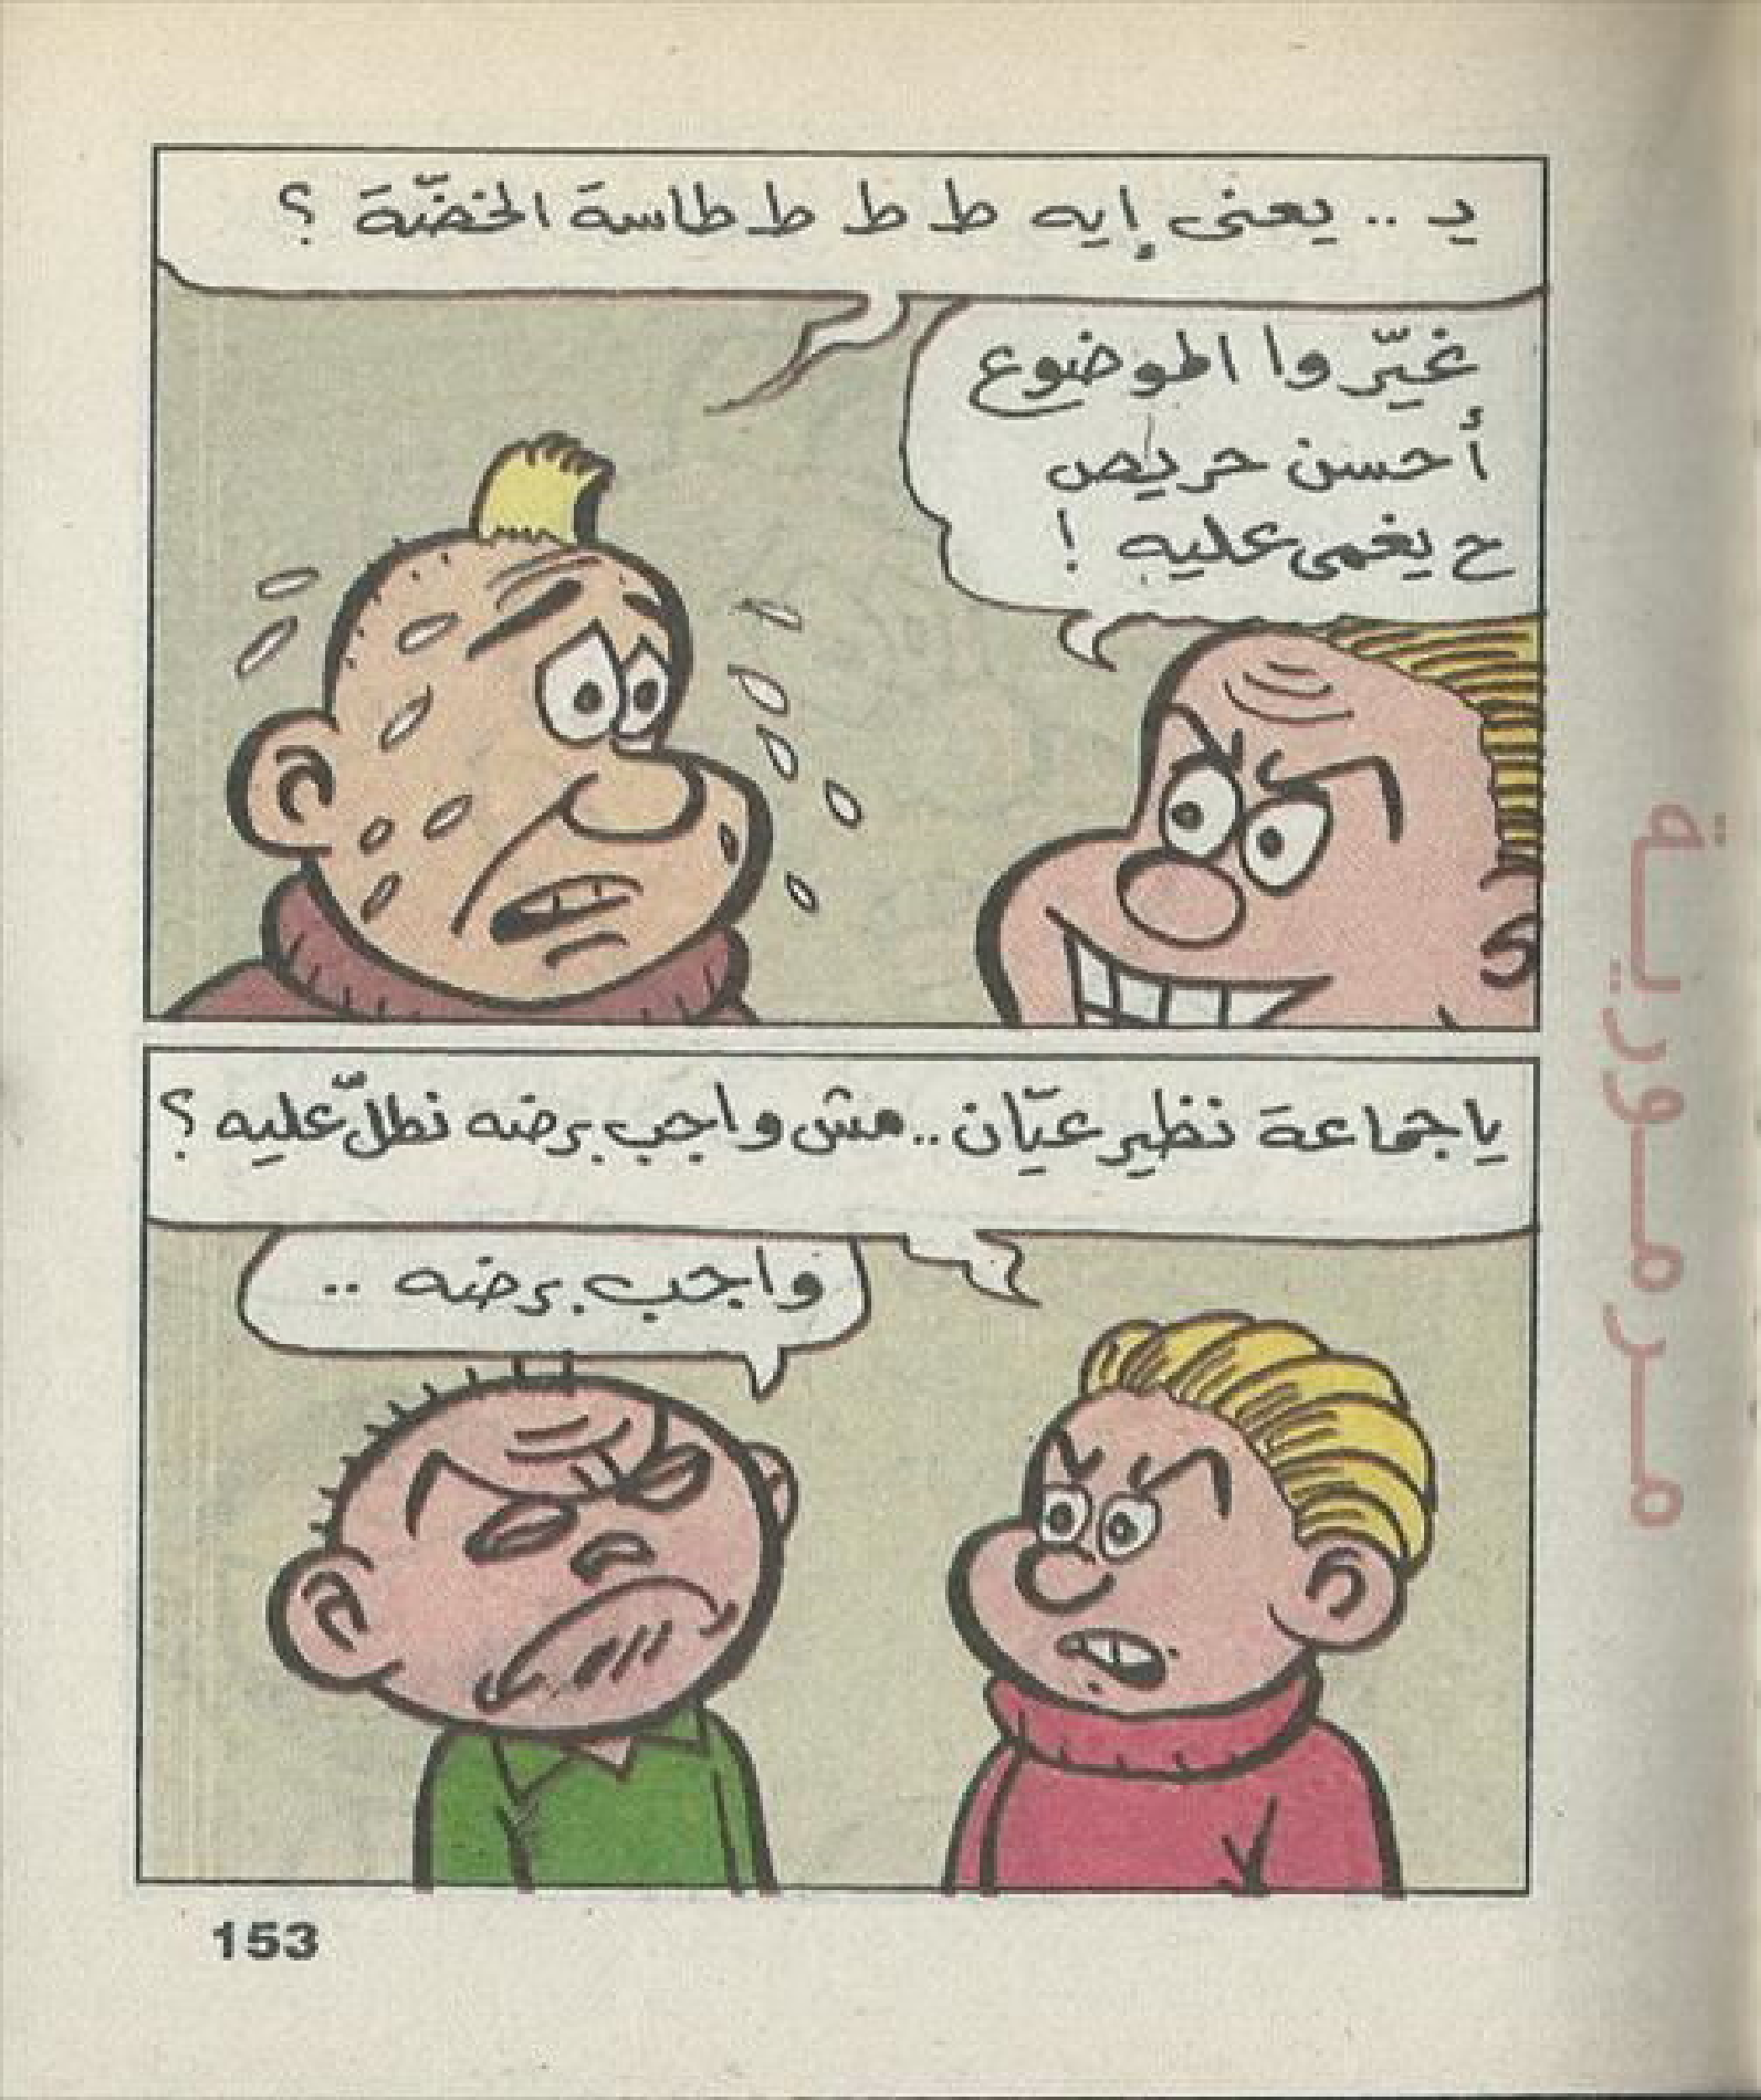 يـ .. يعنى إيه ط ط ط طاسة الخضّة ؟
غيّروا الموضوع
أحسن حريص
ح يغمى عليه !
ياجماعة نظير عيّان .. مش واجب برضه نطلّ عليه ؟
واجب برضه ..
153
مـرمـوريـة